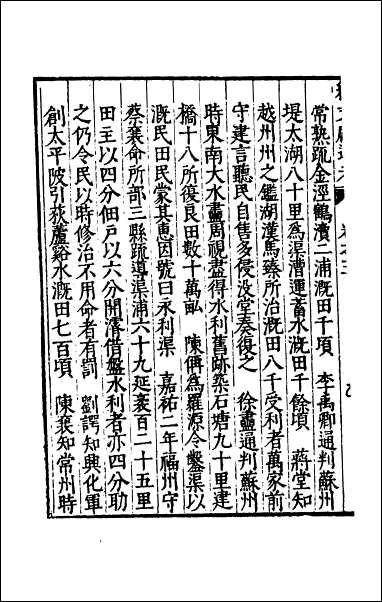 常熟疏金涇鶴瀆二浦溉田千頃　李禹卿通判蘇州
堤太湖八十里爲渠漕運蓄水溉田千餘頃　蔣堂知
越州州之鑑湖漢馬臻所治溉田八千受利者萬家前
守建言聽民自售多侵没堂奏復之　徐盡通判蘇州
時東南大水盡周視盡得水利舊跡築石塘九十里建
橋十八所復良田數十萬畝　陳偁爲羅源令鑿渠以
溉民田民蒙其惠因號曰永利渠　嘉祐二年福州守
蔡襄命所部三縣疏導渠浦六十九延袤百二十五里
田主以四分佃戸以六分開濬借盤水利者亦四分助
之仍令民以時修治不用命者有罰　劉諤知興化軍
創太平陂引荻蘆谿水溉田七百頃　陳襄知常州時